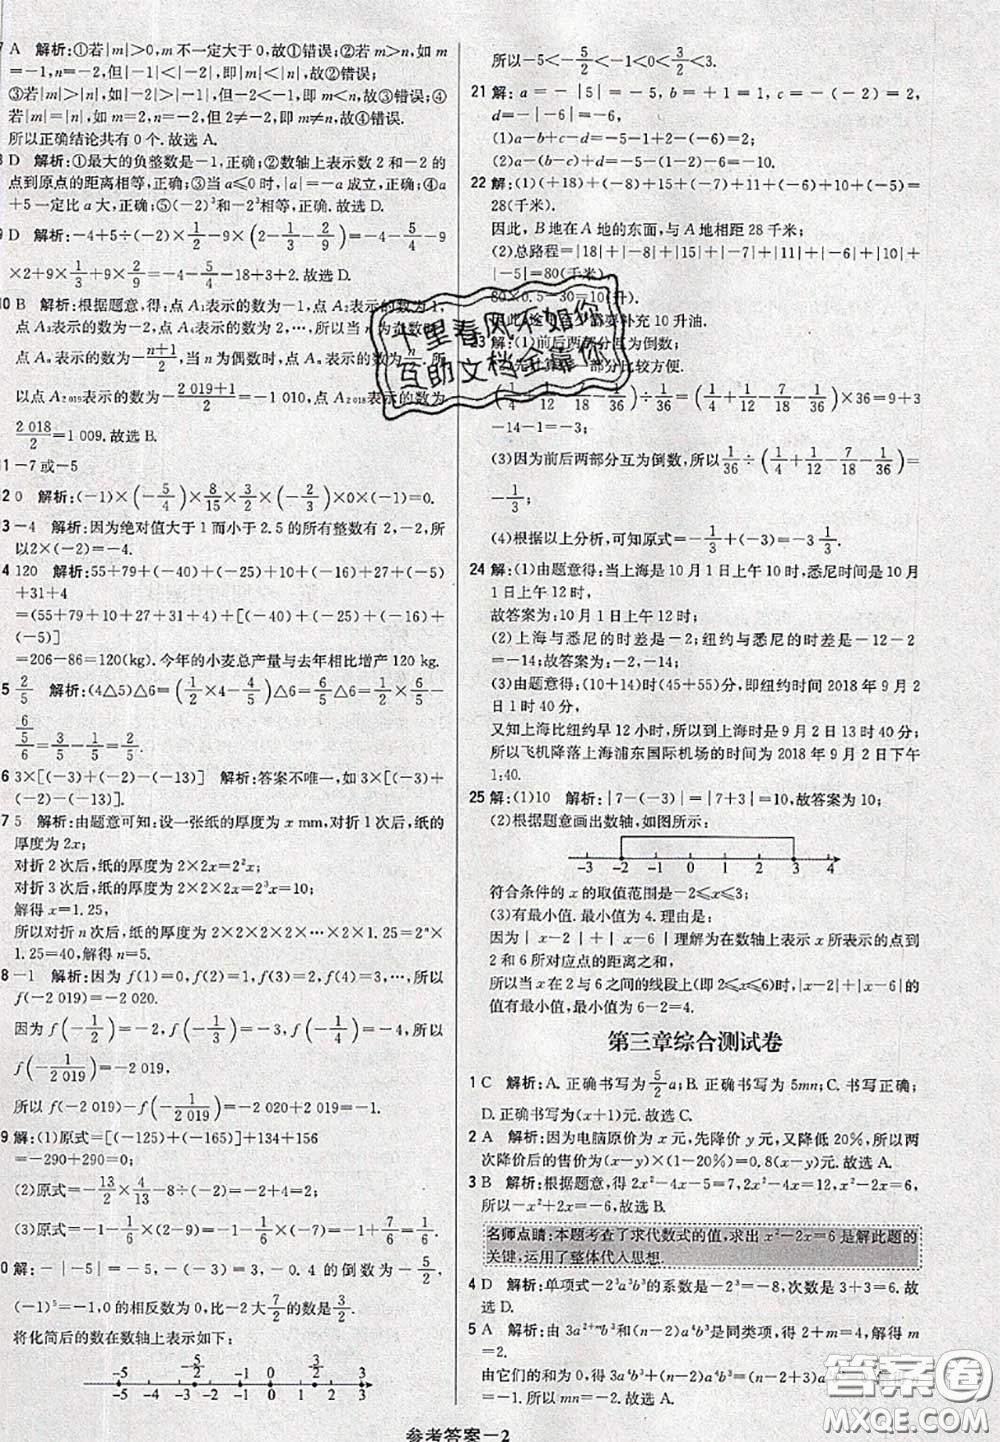 7 A 解析:①若|m|>0,m不一定大于0,故①错误;②若m>n,如m
=-1,n=-2,但|-1|<|-2|,即|m|<|n|,故②错误;
③若|m|>|n|,如|-2|>|-1|,即m<n,故③错误;④
若|m|=|n|,如m=2,n=-2,但2≠-2,即m=n,故④错误.
所以正确结论共有0个.故选A.
8 D 解析:①最大的负整数是-1,正确;②数轴上表示数2和-2的
点到原点的距离相等,正确;③当a≤0时,|a|=-a成立,正确;④a
+5一定比a大,正确;⑤(-2)³和-2³相等,正确.故选D.
9 D 解析:-4+5÷(-2)×1/2-9×(2-1/3-2/9)=-4-5/4-9
×2+9×1/3+9×2/9=-4-5/4-18+3+2.故选D.
10 B 解析:根据题意,得:点A₁表示的数为-1,点A₂表示的数为1,
点A₃表示的数为-2,点A₄表示的数为2,…,所以当n为奇数时,
点Aₙ表示的数为-(n+1)/2,当n为偶数时,点Aₙ表示的数为n/2.所
以点A₂₀₁₉表示的数为-(2 019+1)/2=-1 010,点A₂₀₁₈表示的数为
2 018/2=1 009.故选B.
11 -7或-5
12 0 解析:(-1)×(-5/4)×8/15×3/2×(-2/3)×0×(-1)=0.
13 -4 解析:因为绝对值大于1而小于2.5的所有整数有2,-2,所
以2×(-2)=-4.
14 120 解析:55+79+(-40)+(-25)+10+(-16)+27+(-5)
+31+4
=(55+79+10+27+31+4)+[(-40)+(-25)+(-16)+
(-5)]
=206-86=120(kg).今年的小麦总产量与去年相比增产120 kg.
15 2/5 解析:(4△5)△6=(1/2×4-4/5)△6=6/5△6=1/2×6/5-
(6/5)/6=3/5-1/5=2/5.
16 3×[(-3)+(-2)-(-13)] 解析:答案不唯一,如3×[(-3)+
(-2)-(-13)].
17 5 解析:由题意可知:设一张纸的厚度为x mm,对折1次后,纸的
厚度为2x;
对折2次后,纸的厚度为2×2x=2²x;
对折3次后,纸的厚度为2×2×2x=2³x=10;
解得x=1.25,
所以对折n次后,纸的厚度为2×2×2×2×…×2×1.25=2ⁿ×
1.25=40,解得n=5.
18 -1 解析:因为f(1)=0,f(2)=1,f(3)=2,f(4)=3,…,所以
f(-2 019)=-2 020.
因为f(-1/2)=-2,f(-1/3)=-3,f(-1/4)=-4,所以
f(-1/2 019)=-2 019,
所以f(-2 019)-f(-1/2 019)=-1.
19 解:(1)原式=[(-125)+(-165)]+134+156
=-290+290=0;
(2)原式=-13/2×4/13-8÷(-2)=-2+4=2;
(3)原式=-1-1/6×(2-9)=-1-1/6×(-7)=-1+7/6=1/6.
20 解:-|-5|=-5,-(-3)=3,-0.4的倒数为-5/2,
(-1)⁵=-1,0的相反数为0,比-2大7/2的数是3/2.
将化简后的数在数轴上表示如下:
-5 -5/2 -1 0 3/2 3
-5 -4 -3 -2 -1 0 1 2 3
所以-5<-5/2<-1<0<3/2<3.
21 解:a=-|5|=-5,b=+1=1,c=-(-2)=2,
d=-|-6|=-6,
(1)a-b+c-d=-5-1+2+6=2;
(2)a+b-c+d=-5+1-2-6=-12.
22 解:(1)(+18)+(-8)+15+(-7)+11+(-6)+10+(-5)=
28(千米).
因此,B地在A地的东面,与A地相距28千米;
(2)总路程=|18|+|-8|+|15|+|-7|+|11|+|-6|+|10|+
|-5|=80(千米),
80×0.5-30=10(升).
补充10升油.
23 解:(1)前后两部分互为倒数;
部分比较方便.
(1/4+1/12-7/18-1/36)÷1/36=(1/4+1/12-7/18-1/36)×36=9+3
(3)因为前后两部分互为倒数,所以1/36÷(1/4+1/12-7/18-1/36)=
-1/3;
(4)根据以上分析,可知原式=-1/3+(-3)=-3 1/3.
24 解:(1)由题意得:当上海是10月1日上午10时,悉尼时间为10月
1日上午12时,
故答案为:10月1日上午12时;
(2)上海与悉尼的时差是-2;纽约与悉尼的时差是-12-2
=-14;故答案为:-2,-14;
(3)由题意得:(10+14)时(45+55)分,即纽约时间2018年9月2
日1时40分,
又知上海比纽约早12小时,所以到上海时是9月2日13时40分;
所以飞机降落上海浦东国际机场的时间为2018年9月2日下午
1:40.
25 解:(1)10 解析:|7-(-3)|=|7+3|=10,故答案为10;
(2)根据题意画出数轴,如图所示:
-3 -2 -1 0 1 2 3 4
符合条件的x的取值范围是-2≤x≤3;
(3)有最小值.最小值为4.理由是:
因为|x-2|+|x-6|理解为在数轴上表示x所表示的点到
2和6所对应点的距离之和,
所以当x在2与6之间的线段上(即2≤x≤6)时,|x-2|+|x-6|
的值有最小值,最小值为6-2=4.
第三章综合测试卷
1 C 解析:A.正确书写为5/2a;B.正确书写为5mn;C.书写正确;
D.正确书写为(x+1)元.故选C.
2 A 解析:因为电脑原价为x元,先降价y元,又降低20%,所以两
次降价后的售价为(x-y)×(1-20%)=0.8(x-y).故选A.
3 B 解析:根据题意,得2x²-4x-5=7,2x²-4x=12,x²-2x=6,
所以-x²+2x=-6,故选B.
名师点睛:本题考查了求代数式的值,求出x²-2x=6是解此题的
关键,运用了整体代入思想.
4 D 解析:单项式-2³a³b³的系数是-2³=-8,次数是3+3=6.故
选D.
5 A 解析:由3a²⁺ᵐb³和(n-2)a⁴b³是同类项,得2+m=4,解得m
=2.
由它们的和为0,得3a⁴b³+(n-2)a⁴b³=(n-2+3)a⁴b³
=-1.所以mn=-2.故选A.
参考答案-2
十里春风不如你
互助文档全靠你
答案卷
MXQE.COM